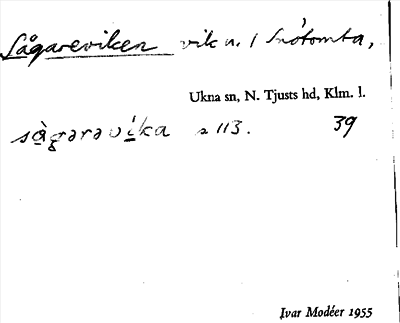 Sågareviken vik n. / Snötomta,
Ukna sn, N. Tjusts hd, Klm. l.
sågərəvika a 113. 39
Ivar Modéer 1955